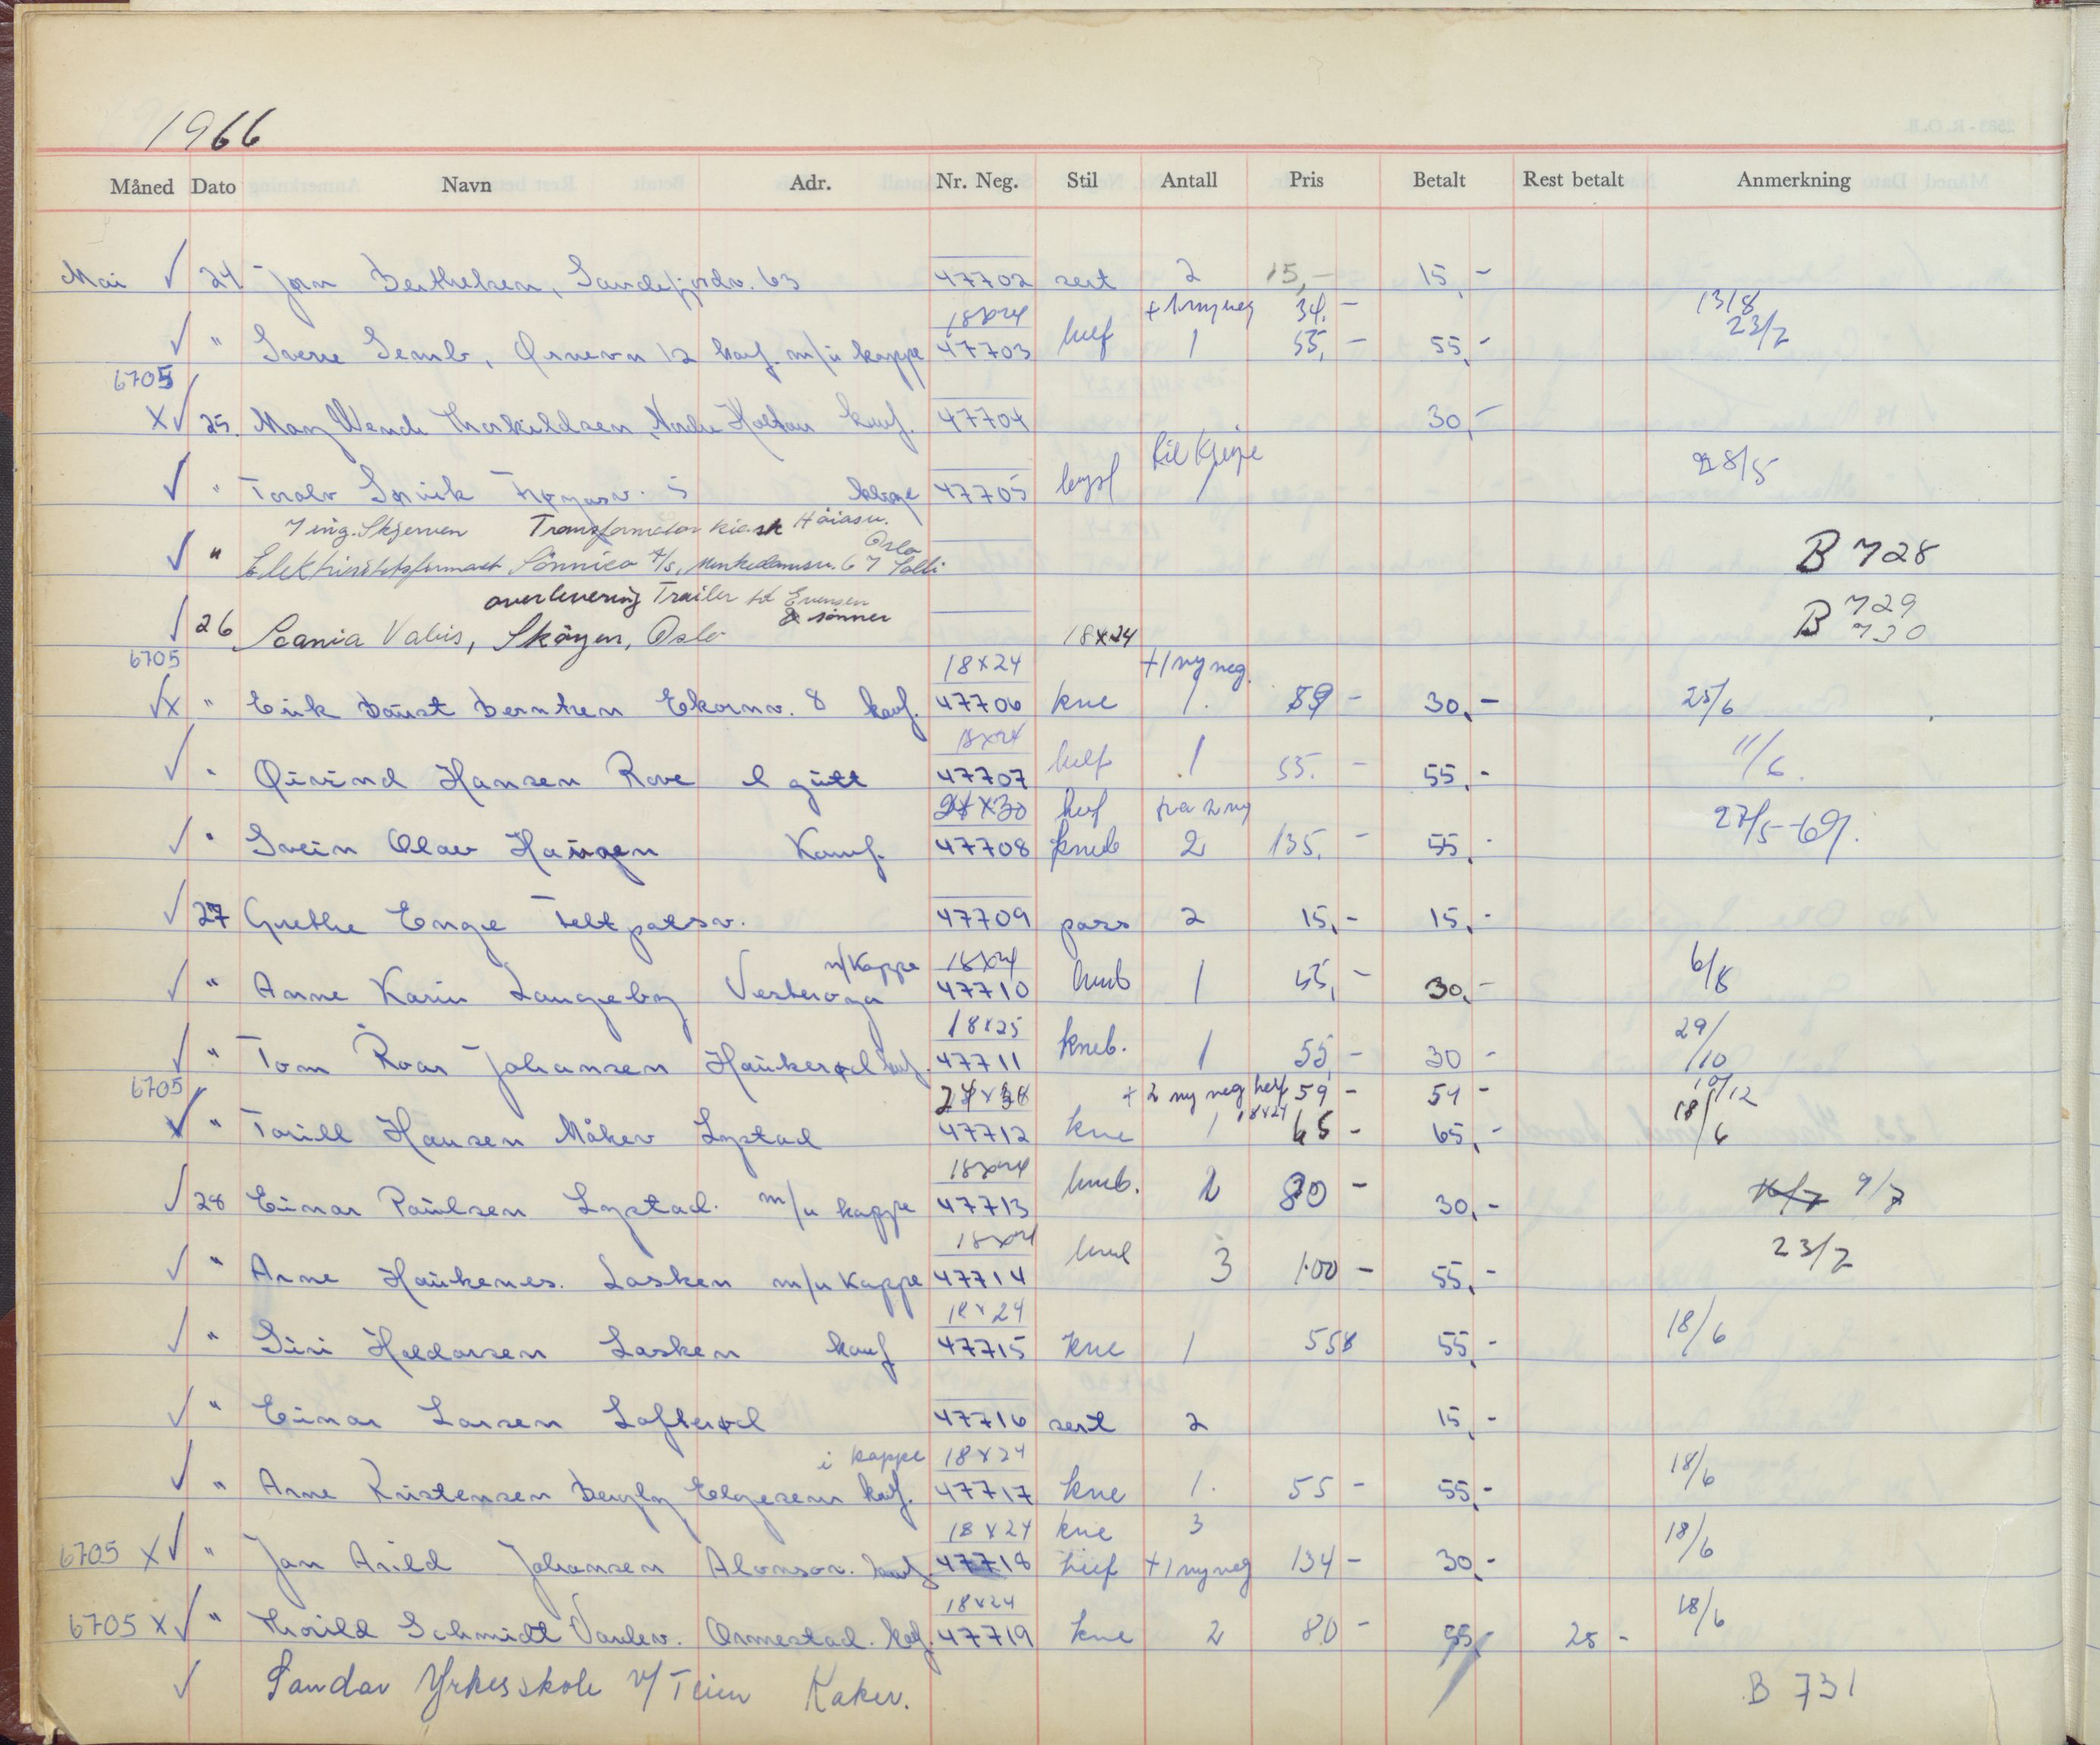 1966
Måned Dato Navn Adr. Nr. Neg. Stil Antall Pris Betalt Rest betalt Anmerkning
Mai ✓ 24 Jørn Berthelsen, Sandefjordv. 63 47702 sert 2 15,- 15,-
18x24 + 1 ny neg 34,- 13/8
✓ " Sverre Semb, Ørnevn 12 konf. m/u kappe 47703 helf 1 55,- 55,- 23/7
6705
X ✓ 25. May Wenche Thorkildsen, Nordre Holtan konf. 47704 30,-
til Kjeipe
✓ " Toralv 5 47705 1 28/5
7 ing. Skjerven Transformator kiosk Håiasv.
✓ " Elektrisitetsfirmaet Sönnico A/S, Munkedamsv. 67 Solli Oslo B 728
overlevering Trailer til Evensen & sønner B 729
✓ 26 Scania Vabis, Skøyen, Oslo 18x24 B 730
6705 18x24 + 1 ny neg.
✓x " Erik Baust Berntsen Ekornv. 8 konf. 47706 kne 1. 89 - 30,- 25/6
18x24
✓ " Øivind Hansen Rove 1 gutt 47707 helf 1 55. - 55,- 11/6.
24x30 hef fra 2 ny
✓ " Svein Olav Haugen Konf. 47708 kneb 2 135. - 55,- 27/5-69.
✓ 27 Grethe Enge 47709 pass 2 15,- 15,-
u/kappe 18x24
✓ " Anne Karin Langeby Vesterøya 47710 kneb 1 55,- 30,- 6/8
18x25
✓ " Tom Roar Johansen Haukerød konf. 47711 kneb. 1 55,- 30 - 29/10
6705 + 2 ny neg helf 59 - 59 - 10/12
✓ " Torill Hansen Måkev Lystad 47712 kne 1 18x24 65 - 65,- 18/6
18x24
✓ 28 Einar Paulsen Lystad. m/u kappe 47713 kneb. 2 80 - 30,- 9/7
18x24
✓ " Arne Haukenes. Lasken m/u kappe 47714 3 100 - 55,- 23/7
18x24
✓ " Siri Haldorsen Lasken konf 47715 kne 1 55 55,- 18/6
✓ " Einar Larsen Lofterød 47716 sert 2 15,-
i kappe 18x24
✓ " Arne Kristensen Bergby Elgesem konf. 47717 kne 1. 55 - 55,- 18/6
18x24 kne 3
6705 X ✓ " Jan Arild Johansen konf. 47718 helf + 1 ny neg 134 - 30,- 18/6
18x24
6705 X ✓ " Thorild Schmidt Vardev. Ormestad. konf. 47719 kne 2 80 - 55,- 25 - 18/6
✓ Sandar Yrkesskole v/ Teien Kaker. B 731